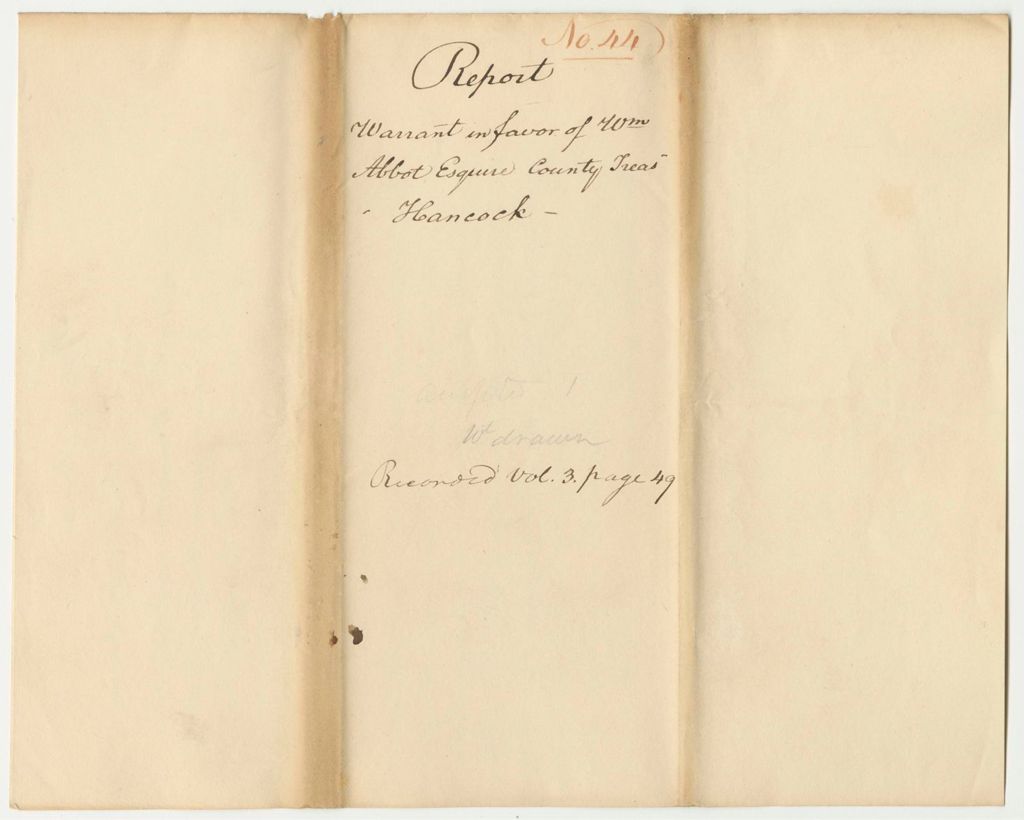 No. 44)
Report
Warrant in favor of Wm
Abbot Esquire County Treas
- Hancock -
accepted
Wt drawn
Recorded Vol. 3. page 49